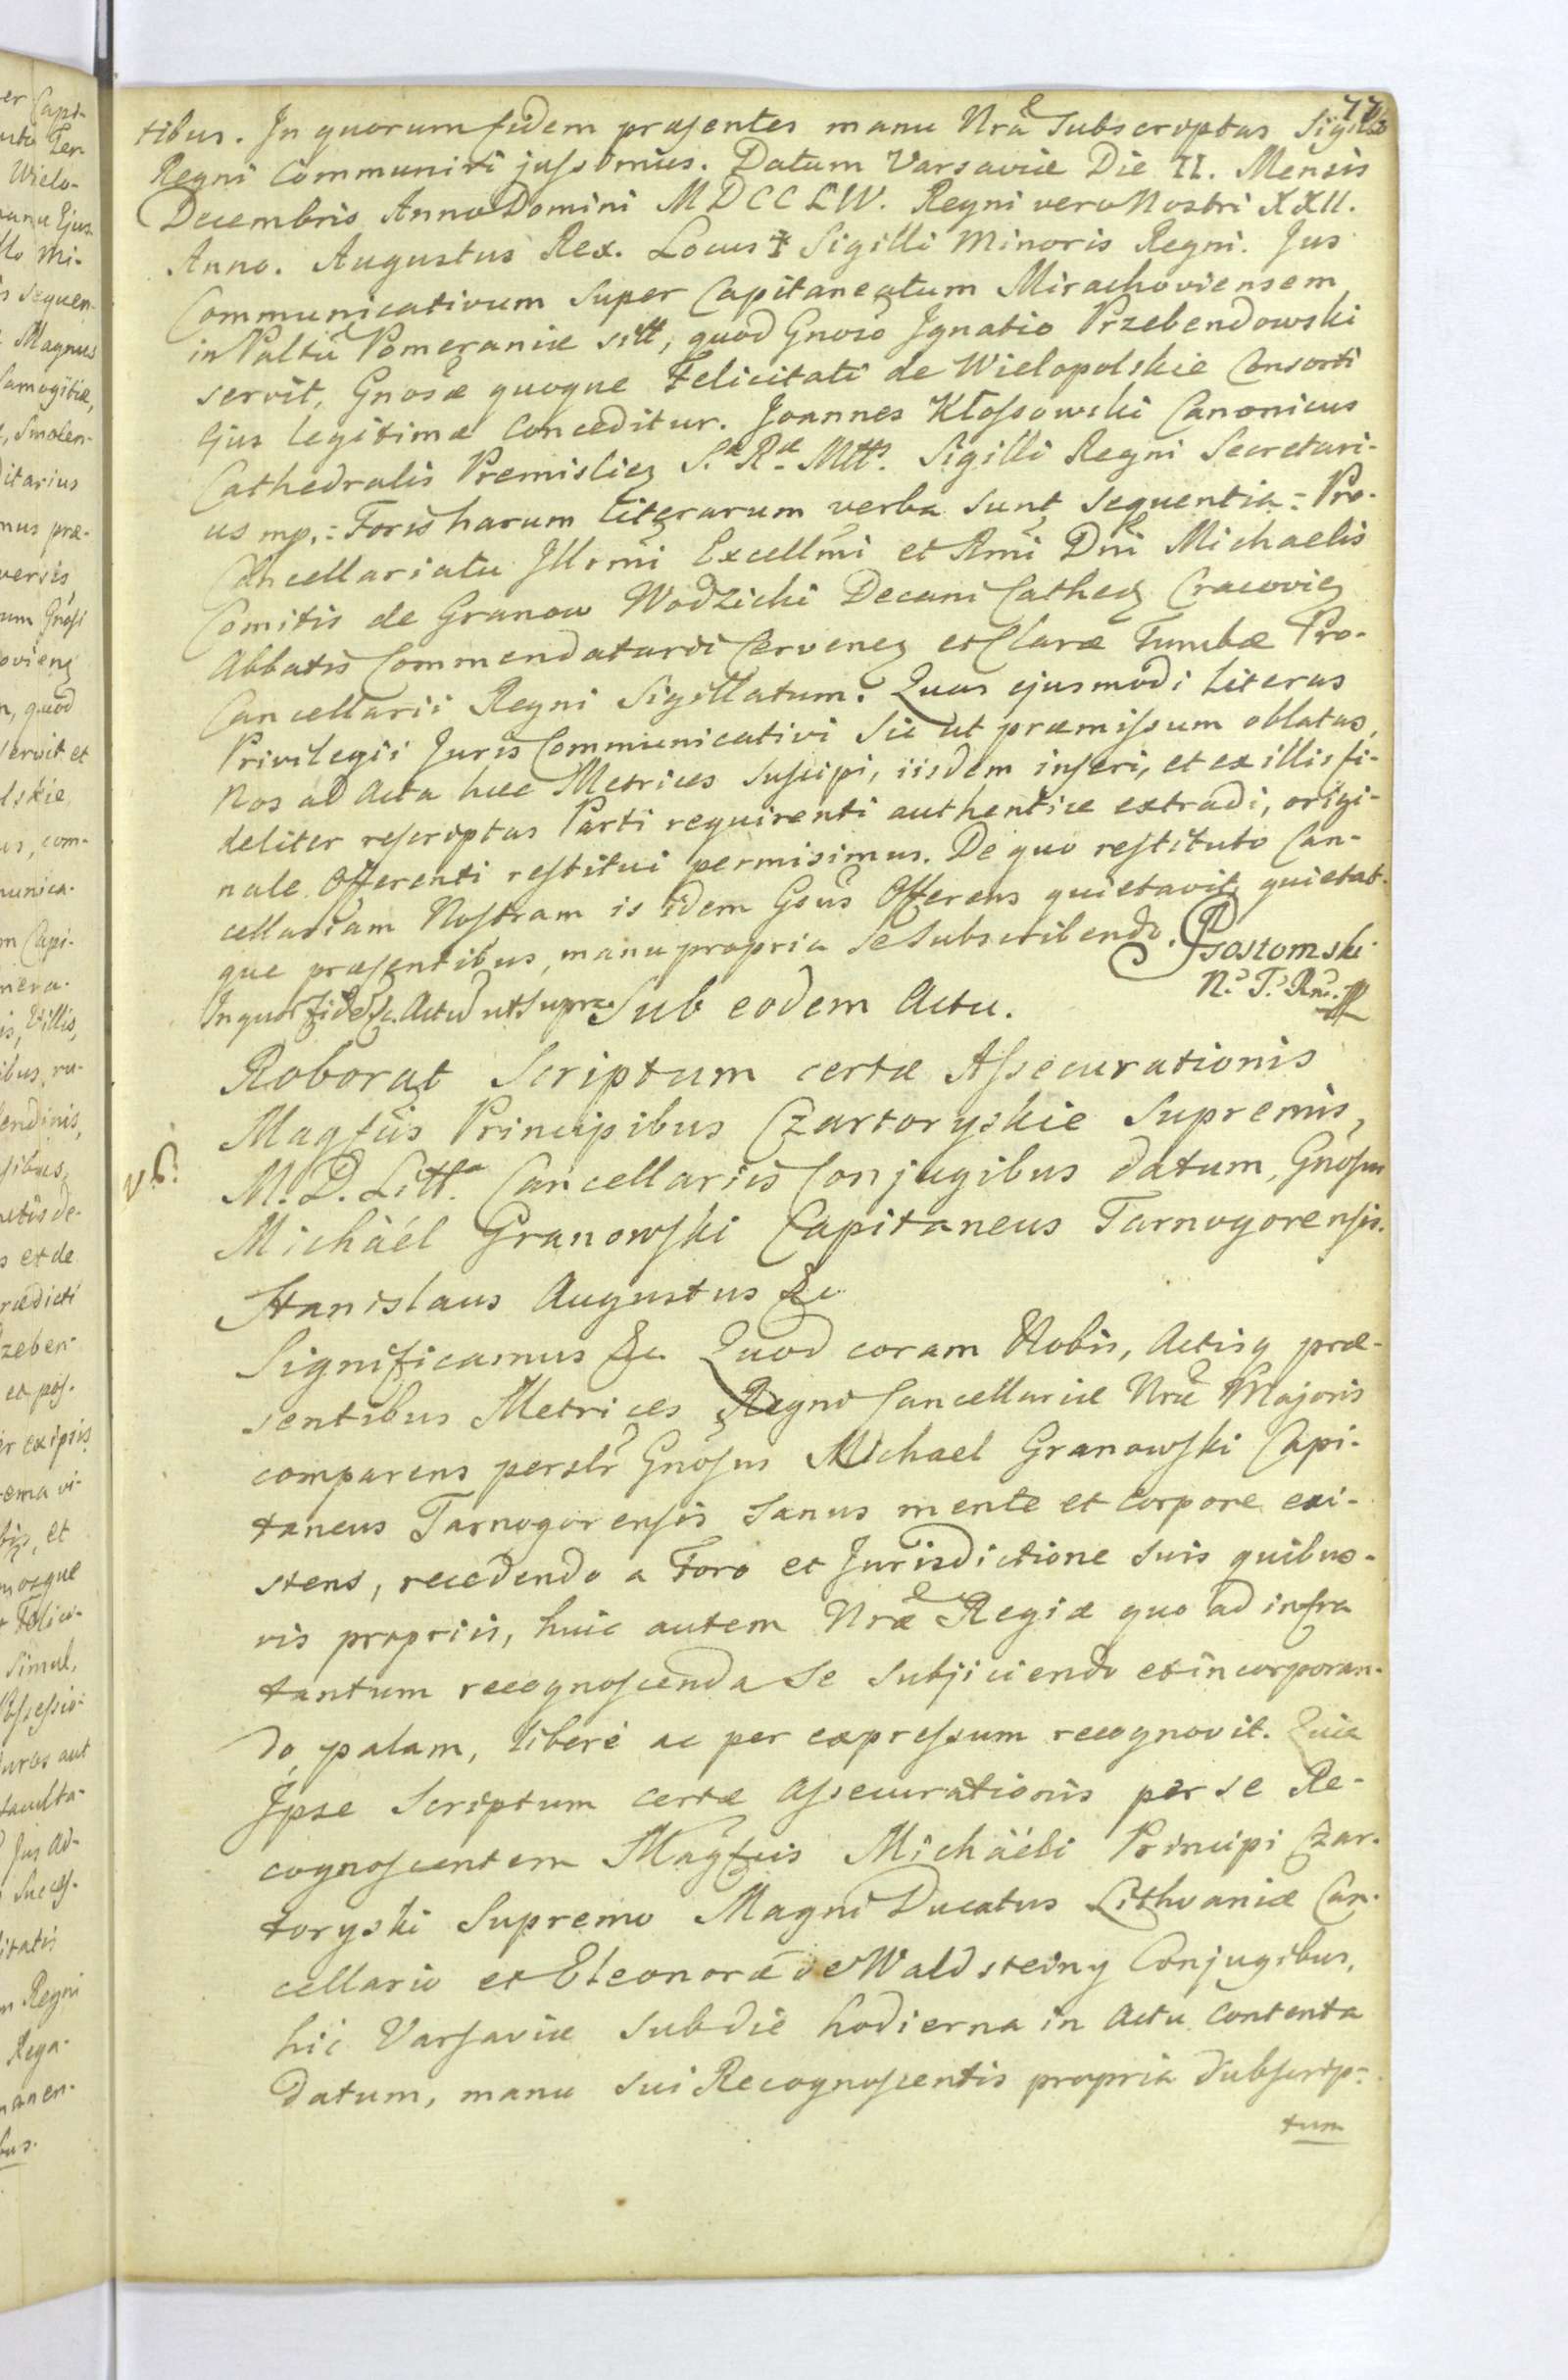 77
tibus. In quorum fidem præsentes manu Nrã Subscriptas Sigillo
Regni Communiri jussimus. Datum Varsaviæ Die II. Mensis
Decembris Anno Domini MDCCLIV. Regni vero Nostri XXII.
Anno. Augustus Rex. Locus Sigilli Minoris Regni. Jus
Communicativum super Capitaneatum Mirachoviensem
in Paltũ Pomeraniæ sitt, quod Gnoso Ignatio Przebendowski
servit, Gnosæ quoque Felicitati de Wielopolskie Consorti
ejus legitimæ conceditur. Joannes Kłossowski Canonicus
Cathedralis Premislieg S. R. Mttis. Sigilli Regni Secretari-
us mp.= Foris harum literarum verba sunt sequentia: Pro-
Cancellariatu Illrmi Excellmi et Rmi Dni Michaelis
Comitis de Granow Wodzicki Decani Catheg Cracovieg
Abbatis Commendatarii Cerveneg et Claræ Tumbæ Pro-
Cancellarii Regni Sigillatum. Quas ejusmodi literas
Privilegii Juris Communicativi sic ut præmissum oblatas,
Nos ad Acta hæc Metrices suscipi, iisdem inseri, et ex illis fi-
deliter rescriptas Parti requirenti authentice extradi, origi-
nale Offerenti restitui permisimus. De quo restituto Can-
cellariam Nostram is idem Gsũs Offerens quietavit, quietat-
que præsentibus, manu propria se subscribendo. Gostomski
N. T. Rm. mp
In quor fidẽ &c. Actũ ut supra. Sub eodem Actu.
Roborat Scriptum certæ Assecurationis
Magfiis Principibus Czartoryskie Supremis,
M. D. Litt. Cancellariis Conjugibus datum, Gnosus
Michäel Granowski Capitaneus Tarnogorensis.
Stanislaus Augustus &c
Significamus &c. Quod coram Nobis, Actisq præ-
sentibus Metrices Regni Cancellariæ Nræ Majoris
comparens persłr Gnosus Michael Granowski Capi-
taneus Tarnogorensis sanus mente et corpore exi-
stens, recedendo a Foro et Jurisdictione suis quibus-
vis propriis, huic autem Nræ Regiæ quo ad infra
tantum recognoscenda se subjiciendo et incorporan-
do, palam, liberé ac per expressum recognovit. Quia
Ipse Scriptum certæ assecurationis per se Re-
cognoscentem Magfcis Michäeli Principi Czar-
toryski Supremo Magni Ducatus Lithvaniæ Can-
cellario et Eleonoræ de Waldsteiny Conjugibus,
hic Varsaviæ sub die hodierna in Actu contenta
datum, manu sui Recognoscentis propria Subscrip-
tum